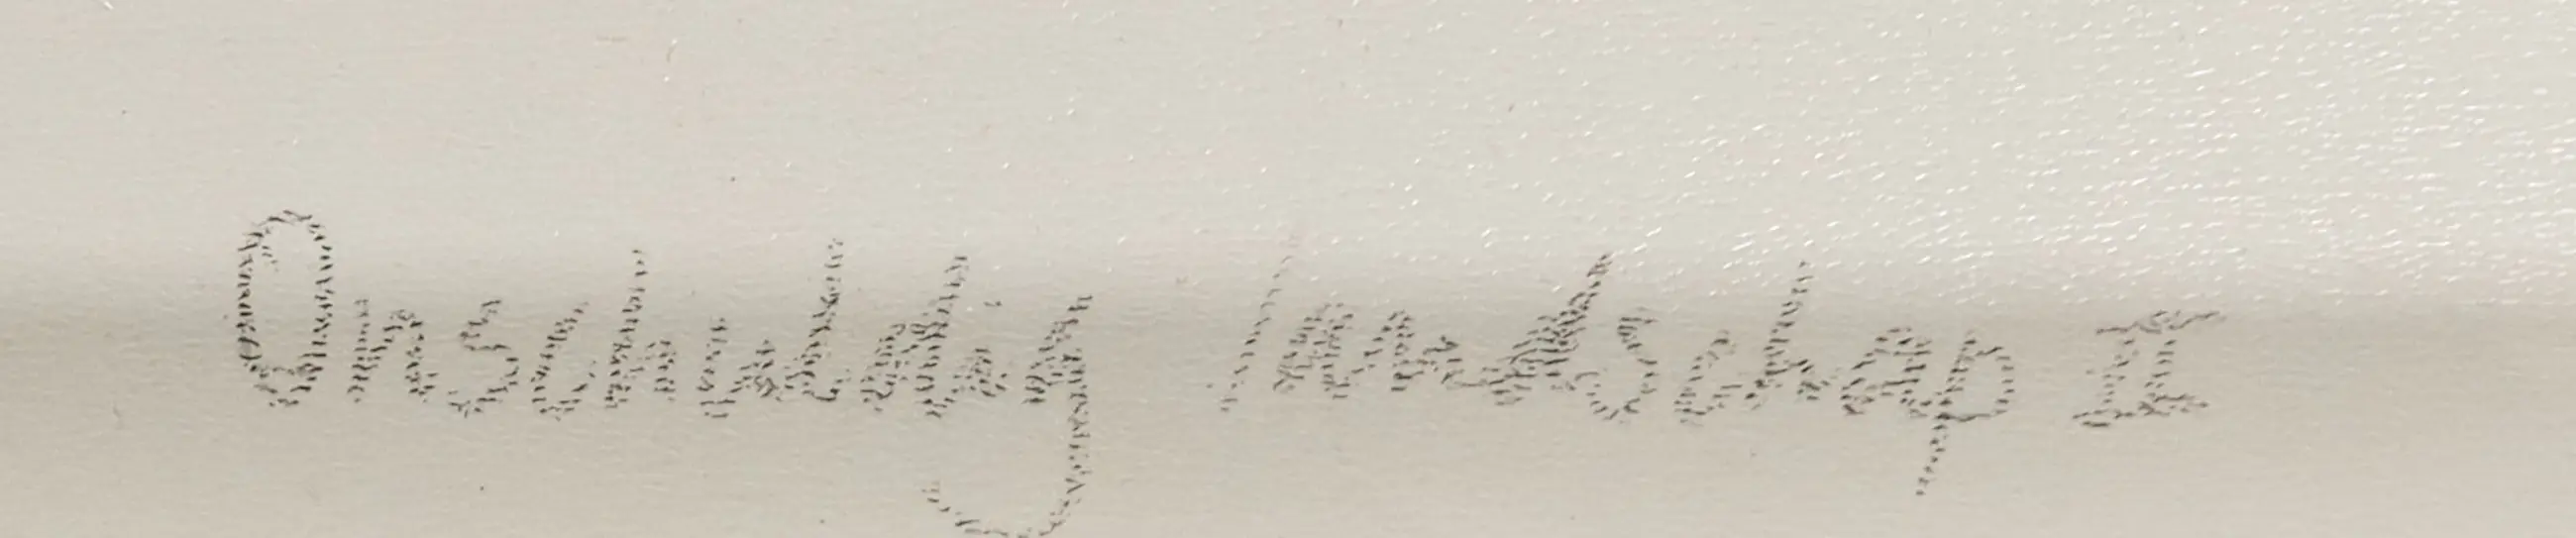 Onschuldig landschap II